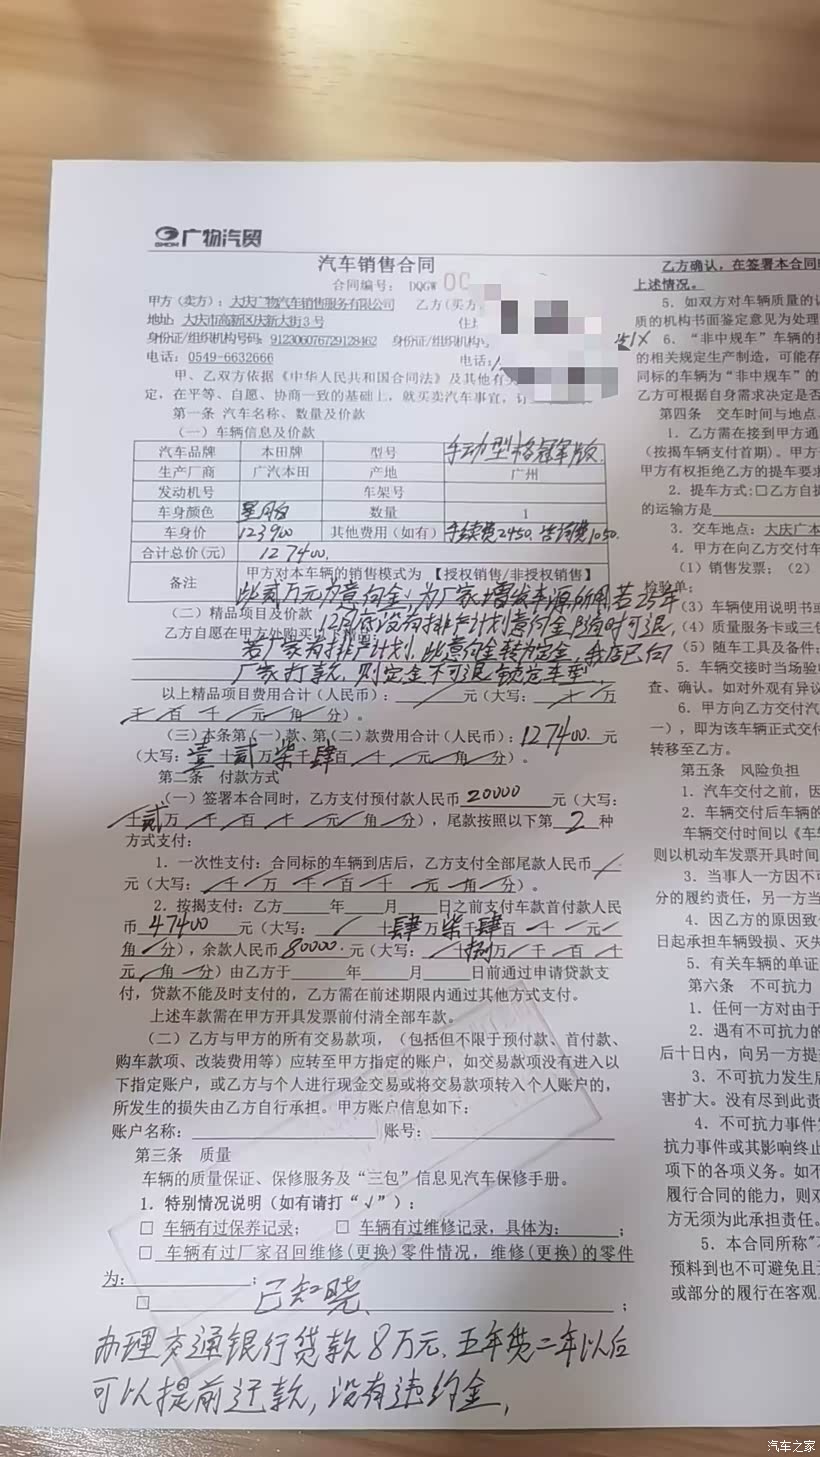 广物汽贸
汽车销售合同
合同编号: DQGW
甲方（卖方）：大庆广物汽车销售服务有限公司 乙方(买方
地址: 大庆市高新区庆新大街3号 住址
身份证/组织机构号码：9123060767291284​62 身份证/组织机构
电话：0549-6632666 电话：
甲、乙双方依据《中华人民共和国合同法》及其他有关
定，在平等、自愿、协商一致的基础上，就买卖汽车事宜，订
第一条 汽车名称、数量及价款
（一）车辆信息及价款
汽车品牌 本田牌 型号 手动型格冠军版
生产厂商 广汽本田 产地 广州
发动机号 车架号
车身颜色 星月白 数量 1
车身价 123900 其他费用（如有） 手续费2450. 咨询费1050.
合计总价(元) 127400.
备注 甲方对本车辆的销售模式为 【授权销售/非授权销售】
此贰万元为意向金，为厂家增发车源所用若25年
（二）精品项目及价款
12月底没有排产计划意向金随时可退,
乙方自愿在甲方处购买以下精品：
若厂家有排产计划，此意向金转为定金，我店已向
厂家打款，则定金不可退
以上精品项目费用合计（人民币）： 元（大写： 十 万
千 百 十 元 角 分）。
（三）本条第（一）款、第（二）款费用合计（人民币）：127400. 元
（大写：壹十贰万柒千肆百 十 元 角 分）。
第二条 付款方式
（一）签署本合同时，乙方支付预付款人民币 20000 元（大写：
十贰万 千 百 十 元 角 分），尾款按照以下第 2 种
方式支付：
1. 一次性支付：合同标的车辆到店后，乙方支付全部尾款人民币
元（大写： 十 万 千 百 十 元 角 分）。
2. 按揭支付：乙方 年 月 日之前支付车款首付款人民
币 47400 元（大写： 十肆万柒千肆百 十 元
角 分），余款人民币80000.元（大写： 十捌万 千 百 十
元 角 分）由乙方于 年 月 日前通过申请贷款支
付，贷款不能及时支付的，乙方需在前述期限内通过其他方式支付。
上述车款需在甲方开具发票前付清全部车款。
（二）乙方与甲方的所有交易款项，（包括但不限于预付款、首付款、
购车款项、改装费用等）应转至甲方指定的账户，如交易款项没有进入以
下指定账户，或乙方与个人进行现金交易或将交易款项转入个人账户的，
所发生的损失由乙方自行承担。甲方账户信息如下：
账户名称： 账号：
第三条 质量
车辆的质量保证、保修服务及“三包”信息见汽车保修手册。
1. 特别情况说明（如有请打“√”）：
□ 车辆有过保养记录； □ 车辆有过维修记录，具体为： ；
□ 车辆有过厂家召回维修(更换)零件情况，维修(更换)的零件
为： ；
□ 已知晓、 ；
办理交通银行贷款8万元、五年贷二年以后
可以提前还款，没有违约金，
乙方确认，在签署本合同
上述情况。
5. 如双方对车辆质量的认
质的机构书面鉴定意见为处理
6. “非中规车”车辆的
的相关规定生产制造，可能存
同标的车辆为“非中规车”的
乙方可根据自身需求决定是否
第四条 交车时间与地点
1. 乙方需在接到甲方通
（按揭车辆支付首期）。甲方
甲方有权拒绝乙方的提车要求
2. 提车方式:□乙方自提
的运输方是
3. 交车地点：大庆广本
4. 甲方在向乙方交付车
（1）销售发票；（2）
检验单；
（3）车辆使用说明书或
（4）质量服务卡或三包
（5）随车工具及备件；
5. 车辆交接时当场验收
查、确认。如对外观有异议
6. 甲方向乙方交付汽
一），即为该车辆正式交付
转移至乙方。
第五条 风险负担
1. 汽车交付之前，因
2. 车辆交付后车辆的
车辆交付时间以《车
则以机动车发票开具时间
3. 当事人一方因不可
分的履约责任，另一方当
4. 因乙方的原因致
日起承担车辆毁损、灭失
5. 有关车辆的单证
第六条 不可抗力
1. 任何一方对由于
2. 遇有不可抗力的
后十日内，向另一方提
3. 不可抗力发生后
害扩大。没有尽到此责
4. 不可抗力事件
抗力事件或其影响终止
项下的各项义务。如不
履行合同的能力，则双
方无须为此承担责任。
5. 本合同所称“不
预料到也不可避免且无
或部分的履行在客观
汽车之家